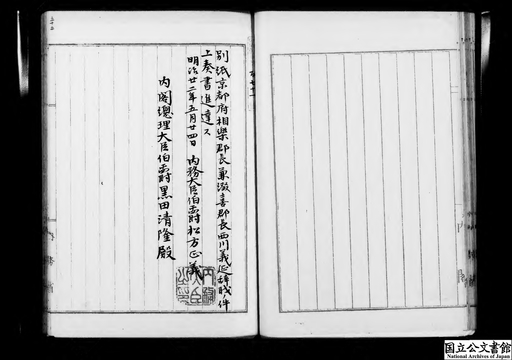 別紙京都府相楽郡長兼綴喜郡長西川義延辞職ノ件
上奏書進達ス
明治廿二年五月廿四日 内務大臣伯爵松方正義
内閣總理大臣伯爵黒田清隆殿
国立公文書館
National Archives of Japan